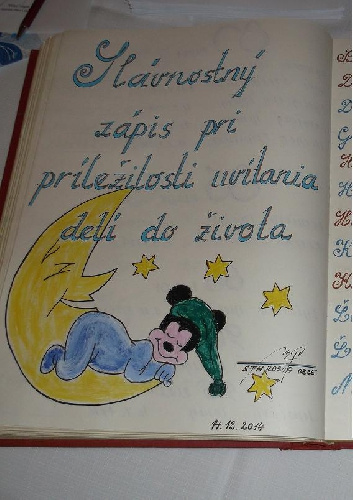 Slávnostný
zápis pri
príležitosti uvítania
detí do života
11.12.2014